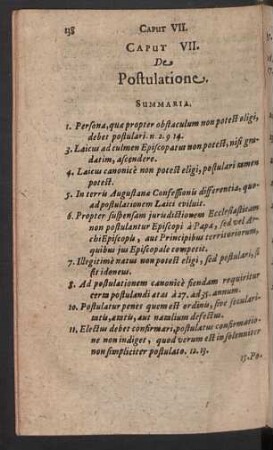 138 CAPUT VII.
CAPUT VII.
De
Postulatione.
SUMMARIA.
1. Persona, quæ propter obstaculum non potest eligi,
debet postulari. n 2. 9 14.
3. Laicus ad culmen Episcopatus non potest, nisi gra-
datim, ascendere.
4. Laicus canonicè non potest eligi, postulari tamen
potest.
5. In terris Augustana Confessionis differentia, quo-
ad postulationem Laici eviluit.
6. Propter suspensam jurisdictionem Ecclesiasticam
non postulantur Episcopi à Papa, sed vel Ar-
chiEpiscopis, aut Principibus territoriorum,
quibus jus Episcopale competit.
7. Illegitimè natus non potest eligi, sed postulari, si
sit idoneus.
8. Ad postulationem canonicè fiendam requiritur
certa postulandi ætas à 27. ad 35. annum.
10. Postulatur penes quem est ordinis, sive secular-
itatis, ætatis, aut natalium defectus.
11. Electus debet confirmari, postulatus confirmatio-
ne non indiget, quod verum est in solenniter
non simpliciter postulato. 12. 13.
13. Po-